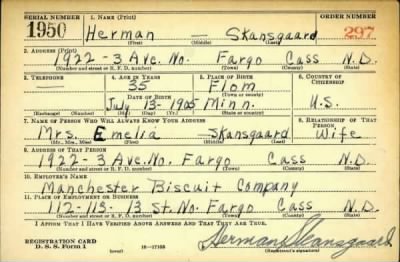 SERIAL NUMBER 1. NAME (Print) ORDER NUMBER
1950 Herman — Skansgaard 297
(First) (Middle) (Last)
2. ADDRESS (Print)
1922 - 3 Ave. No. Fargo Cass N.D.
(Number and street or R. F. D. number) (Town) (County) (State)
3. TELEPHONE 4. AGE IN YEARS 5. PLACE OF BIRTH 6. COUNTRY OF CITIZENSHIP
— 35 Flom
DATE OF BIRTH (Town or county)
July 13 - 1905 Minn. U.S.
(Exchange) (Number) (Mo.) (Day) (Yr.) (State or country)
7. NAME OF PERSON WHO WILL ALWAYS KNOW YOUR ADDRESS 8. RELATIONSHIP OF THAT PERSON
Mrs. Emelia Skansgaard Wife
(Mr., Mrs., Miss) (First) (Middle) (Last)
9. ADDRESS OF THAT PERSON
1922 - 3 Ave. No. Fargo Cass N.D.
(Number and street or R. F. D. number) (Town) (County) (State)
10. EMPLOYER'S NAME
Manchester Biscuit Company
11. PLACE OF EMPLOYMENT OR BUSINESS
112 - 113 - 13 St. No. Fargo Cass N.D.
(Number and street or R. F. D. number) (Town) (County) (State)
I AFFIRM THAT I HAVE VERIFIED ABOVE ANSWERS AND THAT THEY ARE TRUE.
REGISTRATION CARD
D. S. S. Form 1 16—17105 Herman Skansgaard
(Registrant's signature)